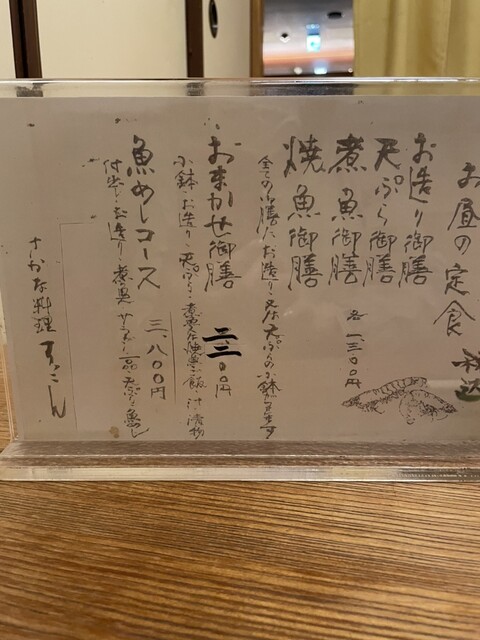 お昼の定食 税込
お造り御膳
天ぷら御膳
煮魚御膳
各 一三〇〇円
焼魚御膳
全ての御膳にお造り又は天ぷらの小鉢が付きます
おまかせ御膳
二三〇〇円
小鉢・お造り・天ぷら・煮魚又は焼魚・ご飯・汁・漬物
魚めしコース
三、八〇〇円
付出し・お造り・煮魚 サラダ 一品 天ぷら 魚めし
さかな料理